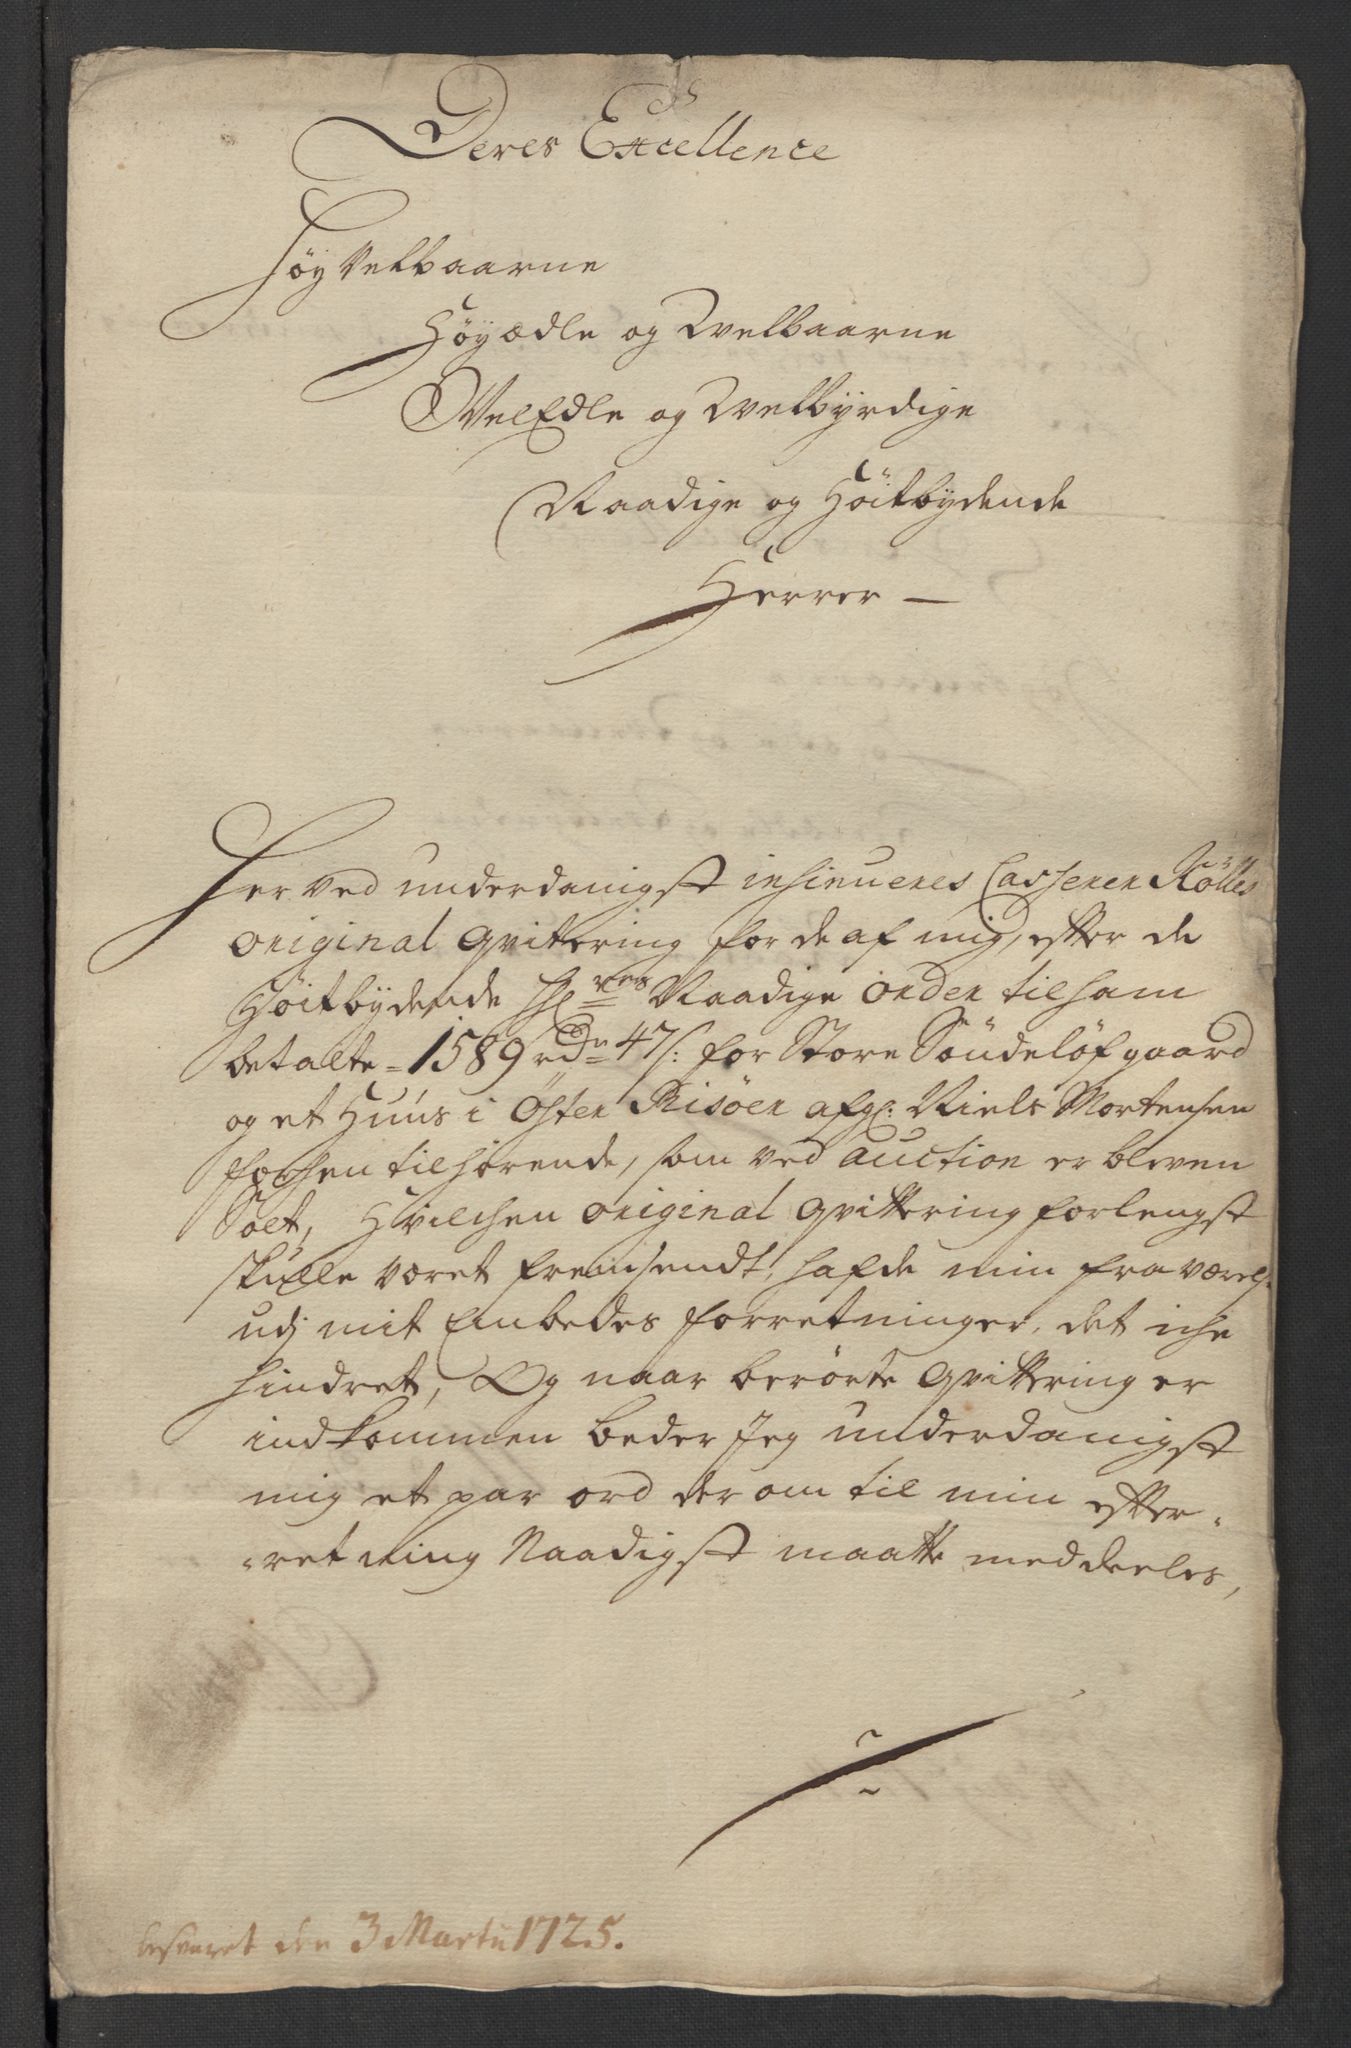 Deres Excellence
Høy Velbaarne
Høyædle og Velbaarne
VelEdle og Velbyrdige
Naadige og Höitbydende
Herrer —
Her ved underdanigst insinueres Casserer Rölles
original qvittering for de af mig, efter de
Höitbydende H: res Naadige Order til ham
betalte = 1589 rdr 47 s: for Store Söndelöf gaard
og et Huus i Öster Risöer afg: Niels Mortensen
tilhørende, som ved auction er bleven
Solt, Hvilchen original qvittering forlengst
skulle været fremsendt, hafde min fraværelse
udj mit Embedes forretninger, det iche
hindret, Og naar berörte qvittering er
indkommen beder Jeg underdanigst
mig et par ord der om til min effter=
=retning Naadigst maatte meddeeles,
besvaret den 3 Martii 1725.